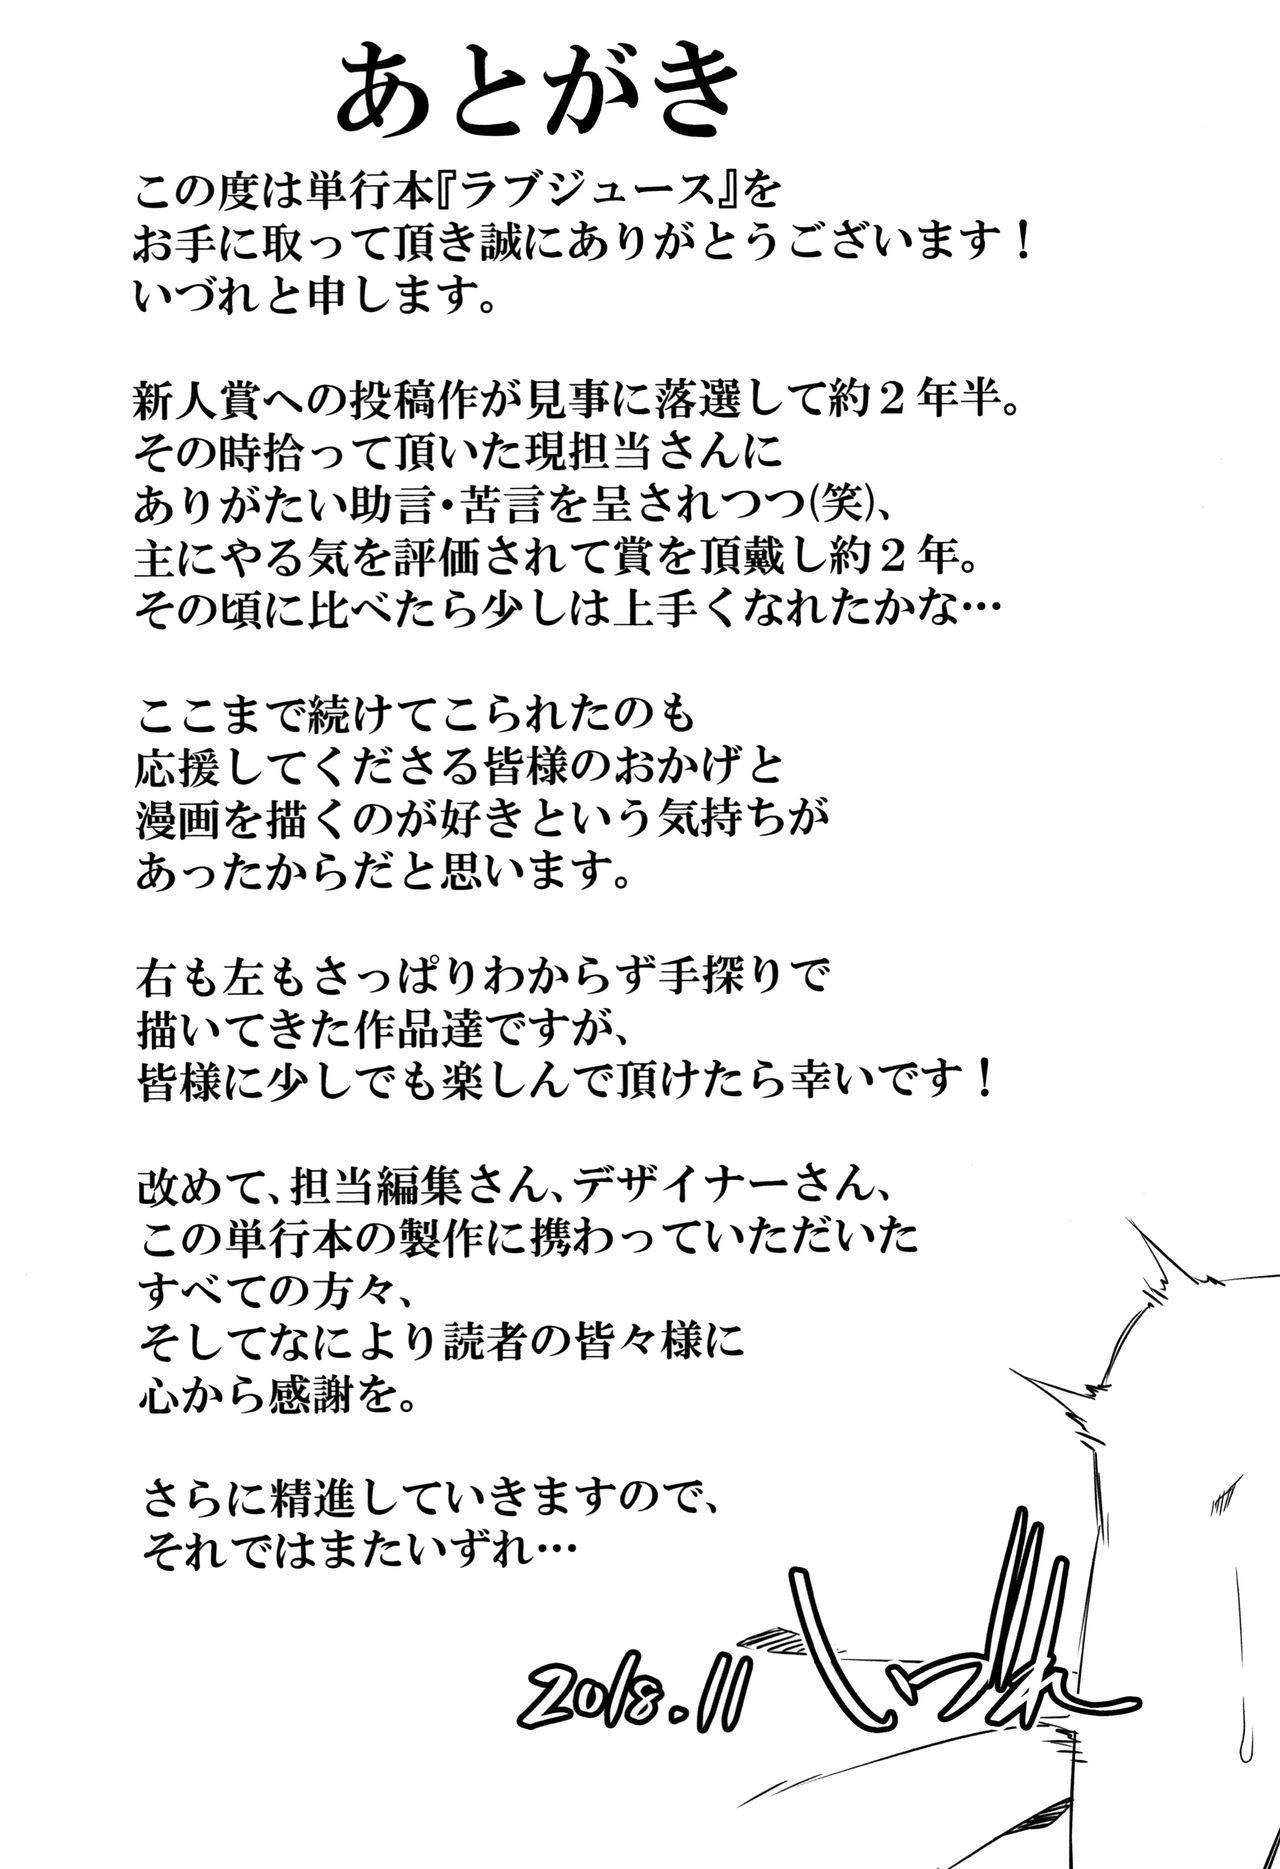 あとがき
この度は単行本『ラブジュース』を
お手に取って頂き誠にありがとうございます！
いづれと申します。
新人賞への投稿作が見事に落選して約２年半。
その時拾って頂いた現担当さんに
ありがたい助言・苦言を呈されつつ(笑)、
主にやる気を評価されて賞を頂戴し約２年。
その頃に比べたら少しは上手くなれたかな…
ここまで続けてこられたのも
応援してくださる皆様のおかげと
漫画を描くのが好きという気持ちが
あったからだと思います。
右も左もさっぱりわからず手探りで
描いてきた作品達ですが、
皆様に少しでも楽しんで頂けたら幸いです！
改めて、担当編集さん、デザイナーさん、
この単行本の製作に携わっていただいた
すべての方々、
そしてなにより読者の皆々様に
心から感謝を。
さらに精進していきますので、
それではまたいずれ…
2018.11 いづれ